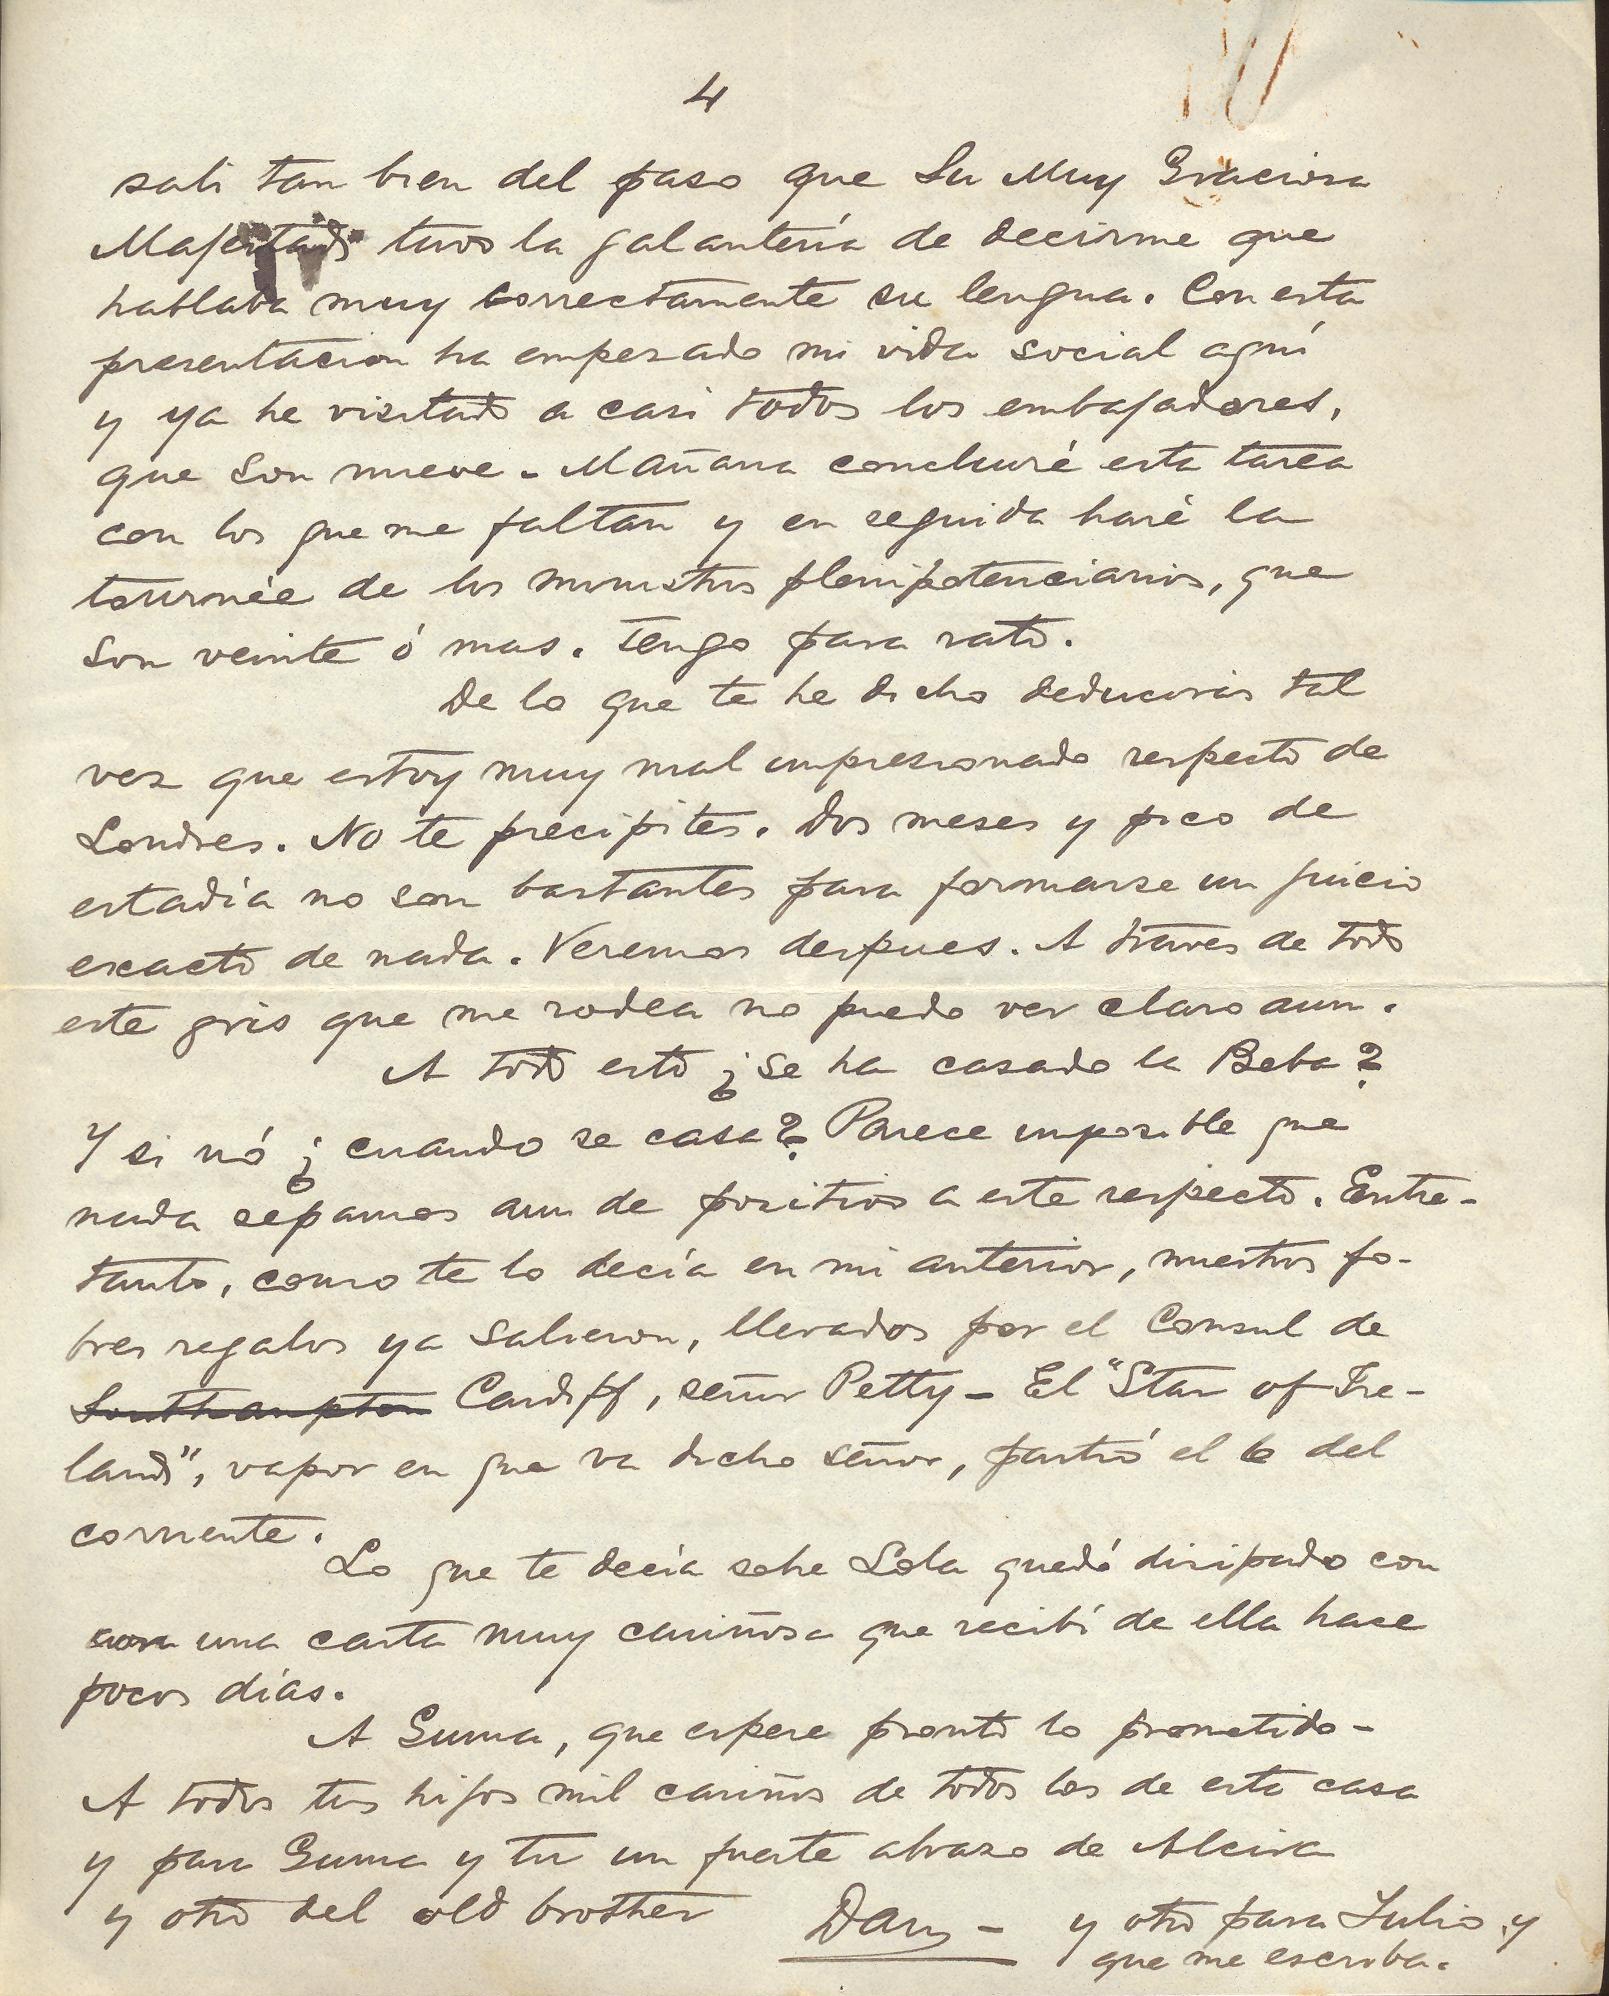 4
sali tan bien del paso que Su Muy Graciosa
Majestad tuvo la galantería de decirme que
hablaba muy correctamente su lengua. Con esta
presentacion ha empezado mi vida social aquí
y ya he visitado a casi todos los embajadores,
que son nueve. Mañana concluiré esta tarea
con los que me faltan y en seguida haré la
tournée de los ministros plenipotenciarios, que
son veinte ó mas. Tengo para rato.
De lo que te he dicho deducirás tal
vez que estoy muy mal impresionado respecto de
Londres. No te precipites. Dos meses y pico de
estadía no son bastantes para formarse un juicio
exacto de nada. Veremos despues. A traves de todo
este gris que me rodea no puedo ver claro aun.
A todo esto ¿se ha casado la Beba?
Y si nó ¿cuando se casa? Parece imposible que
nada sepamos aun de positivo a este respecto. Entre-
tanto, como te lo decía en mi anterior, nuestros po-
bres regalos ya salieron, llevados por el Consul de
Southampton Cardiff, señor Petty - El "Star of Ire-
land", vapor en que va dicho señor, partió el 6 del
corriente.
Lo que te decía sobre Lola quedó disipado con
con una carta muy cariñosa que recibí de ella hace
pocos días.
A Guma, que espere pronto lo prometido -
A todos tus hijos mil cariños de todos los de esta casa
y para Guma y tu un fuerte abrazo de Alcira
y otro del old brother Dan - y otro para Julio y
que me escriba.